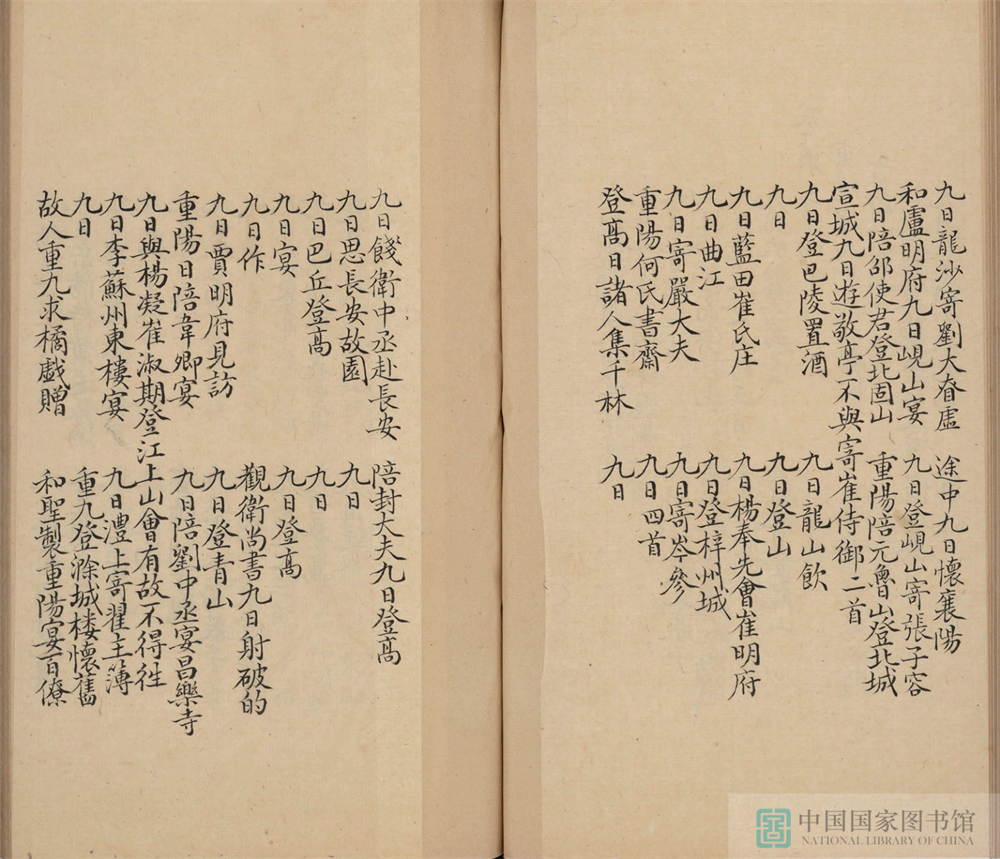 九日龍沙寄劉大眘虛　途中九日懷襄陽
和盧明府九日峴山宴　九日登峴山寄張子容
九日陪邵使君登北固山　重陽陪元魯山登北城
宣城九日遊敬亭不與寄崔侍御二首
九日登巴陵置酒　九日龍山飲
九日　九日登山
九日藍田崔氏庄　九日楊奉先會崔明府
九日曲江　九日登梓州城
九日寄嚴大夫　九日寄岑參
重陽何氏書齋　九日四首
登高日諸人集千林　九日
九日餞衛中丞赴長安　陪封大夫九日登高
九日思長安故園　九日
九日巴丘登高　九日
九日宴　九日登高
九日作　觀衛尚書九日射破的
九日賈明府見訪　九日登青山
重陽日陪韋卿宴　九日陪劉中丞宴昌樂寺
九日與楊凝崔淑期登江上山會有故不得徃
九日李蘇州東樓宴　九日澧上寄翟主簿
九日　重九登滁城楼懷舊
故人重九求橘戲贈　和聖製重陽宴百僚
中国国家图书馆
NATIONAL LIBRARY OF CHINA